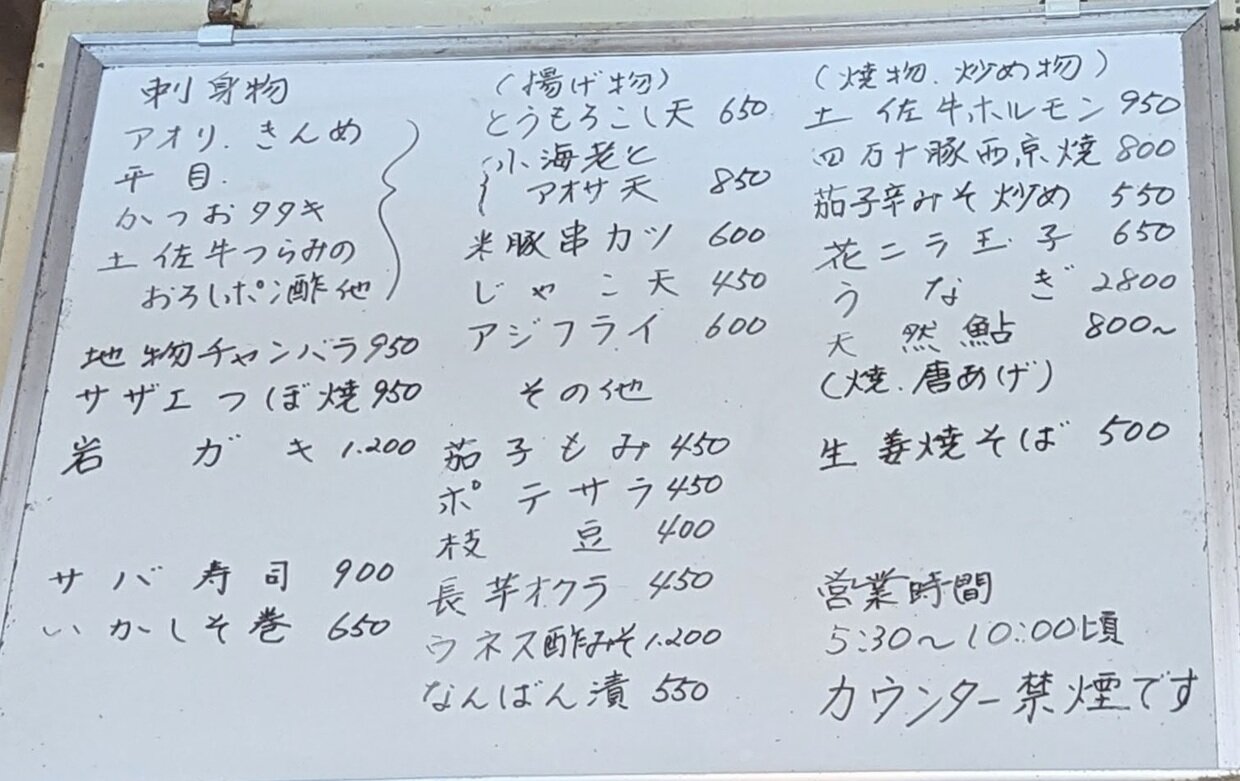 刺身物
アオリ.きんめ
平目.
かつおタタキ
土佐牛つらみの
おろしポン酢他
地物チャンバラ950
サザエつぼ焼950
岩ガキ1.200
サバ寿司900
いかしそ巻650
(揚げ物)
とうもろこし天650
小海老と
アオサ天850
米豚串カツ600
じゃこ天450
アジフライ600
その他
茄子もみ450
ポテサラ450
枝豆400
長芋オクラ450
ウネス酢みそ1.200
なんばん漬550
(焼物.炒め物)
土佐牛ホルモン950
四万十豚西京焼800
茄子辛みそ炒め550
花ニラ玉子650
うなぎ2800
天然鮎800~
(焼.唐あげ)
生姜焼そば500
営業時間
5:30~10:00頃
カウンター禁煙です